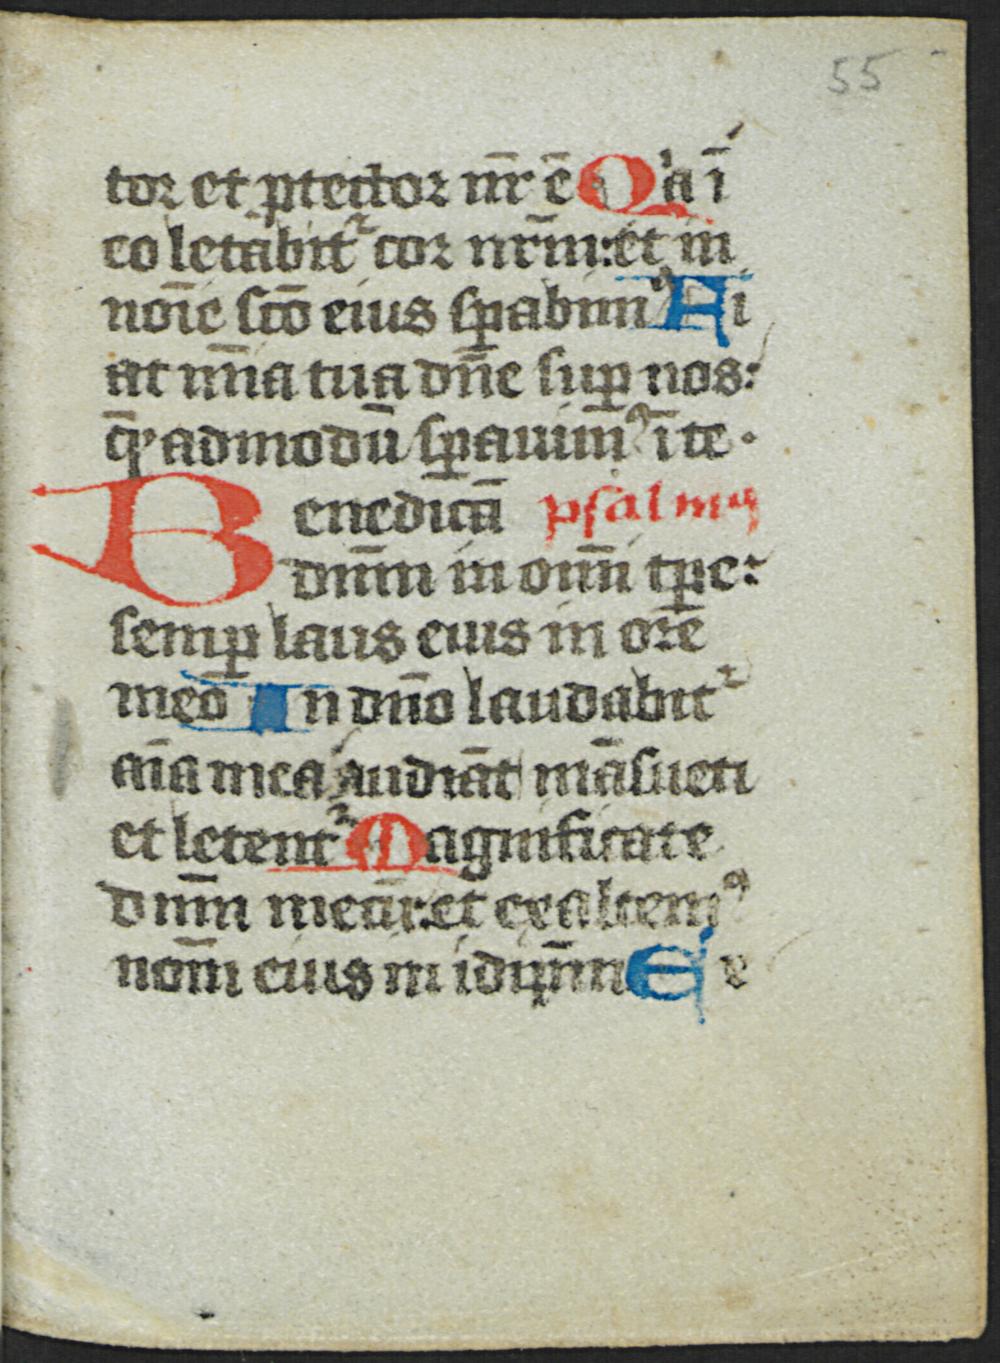 55
tor et ꝓtector nr̄ ē Qͥa ī
eo letabit᷑ cor nr̄m: et in
noīe sc̄o eius sꝑabimꝰ Fi
at mīa tua dn̄e suꝑ nos:
q̄ꝫadmodū sꝑauimꝰ ī te.
Benedicā psalmꝰ
dn̄m in om̄i tꝑe:
semꝑ laus eius in ore
meo In dn̄o laudabit᷑
aīa mea audiāt māsueti
et letent᷑ Magnificate
dn̄m mecū: et exaltemꝰ
nom̄ eius in idip̄m Ex